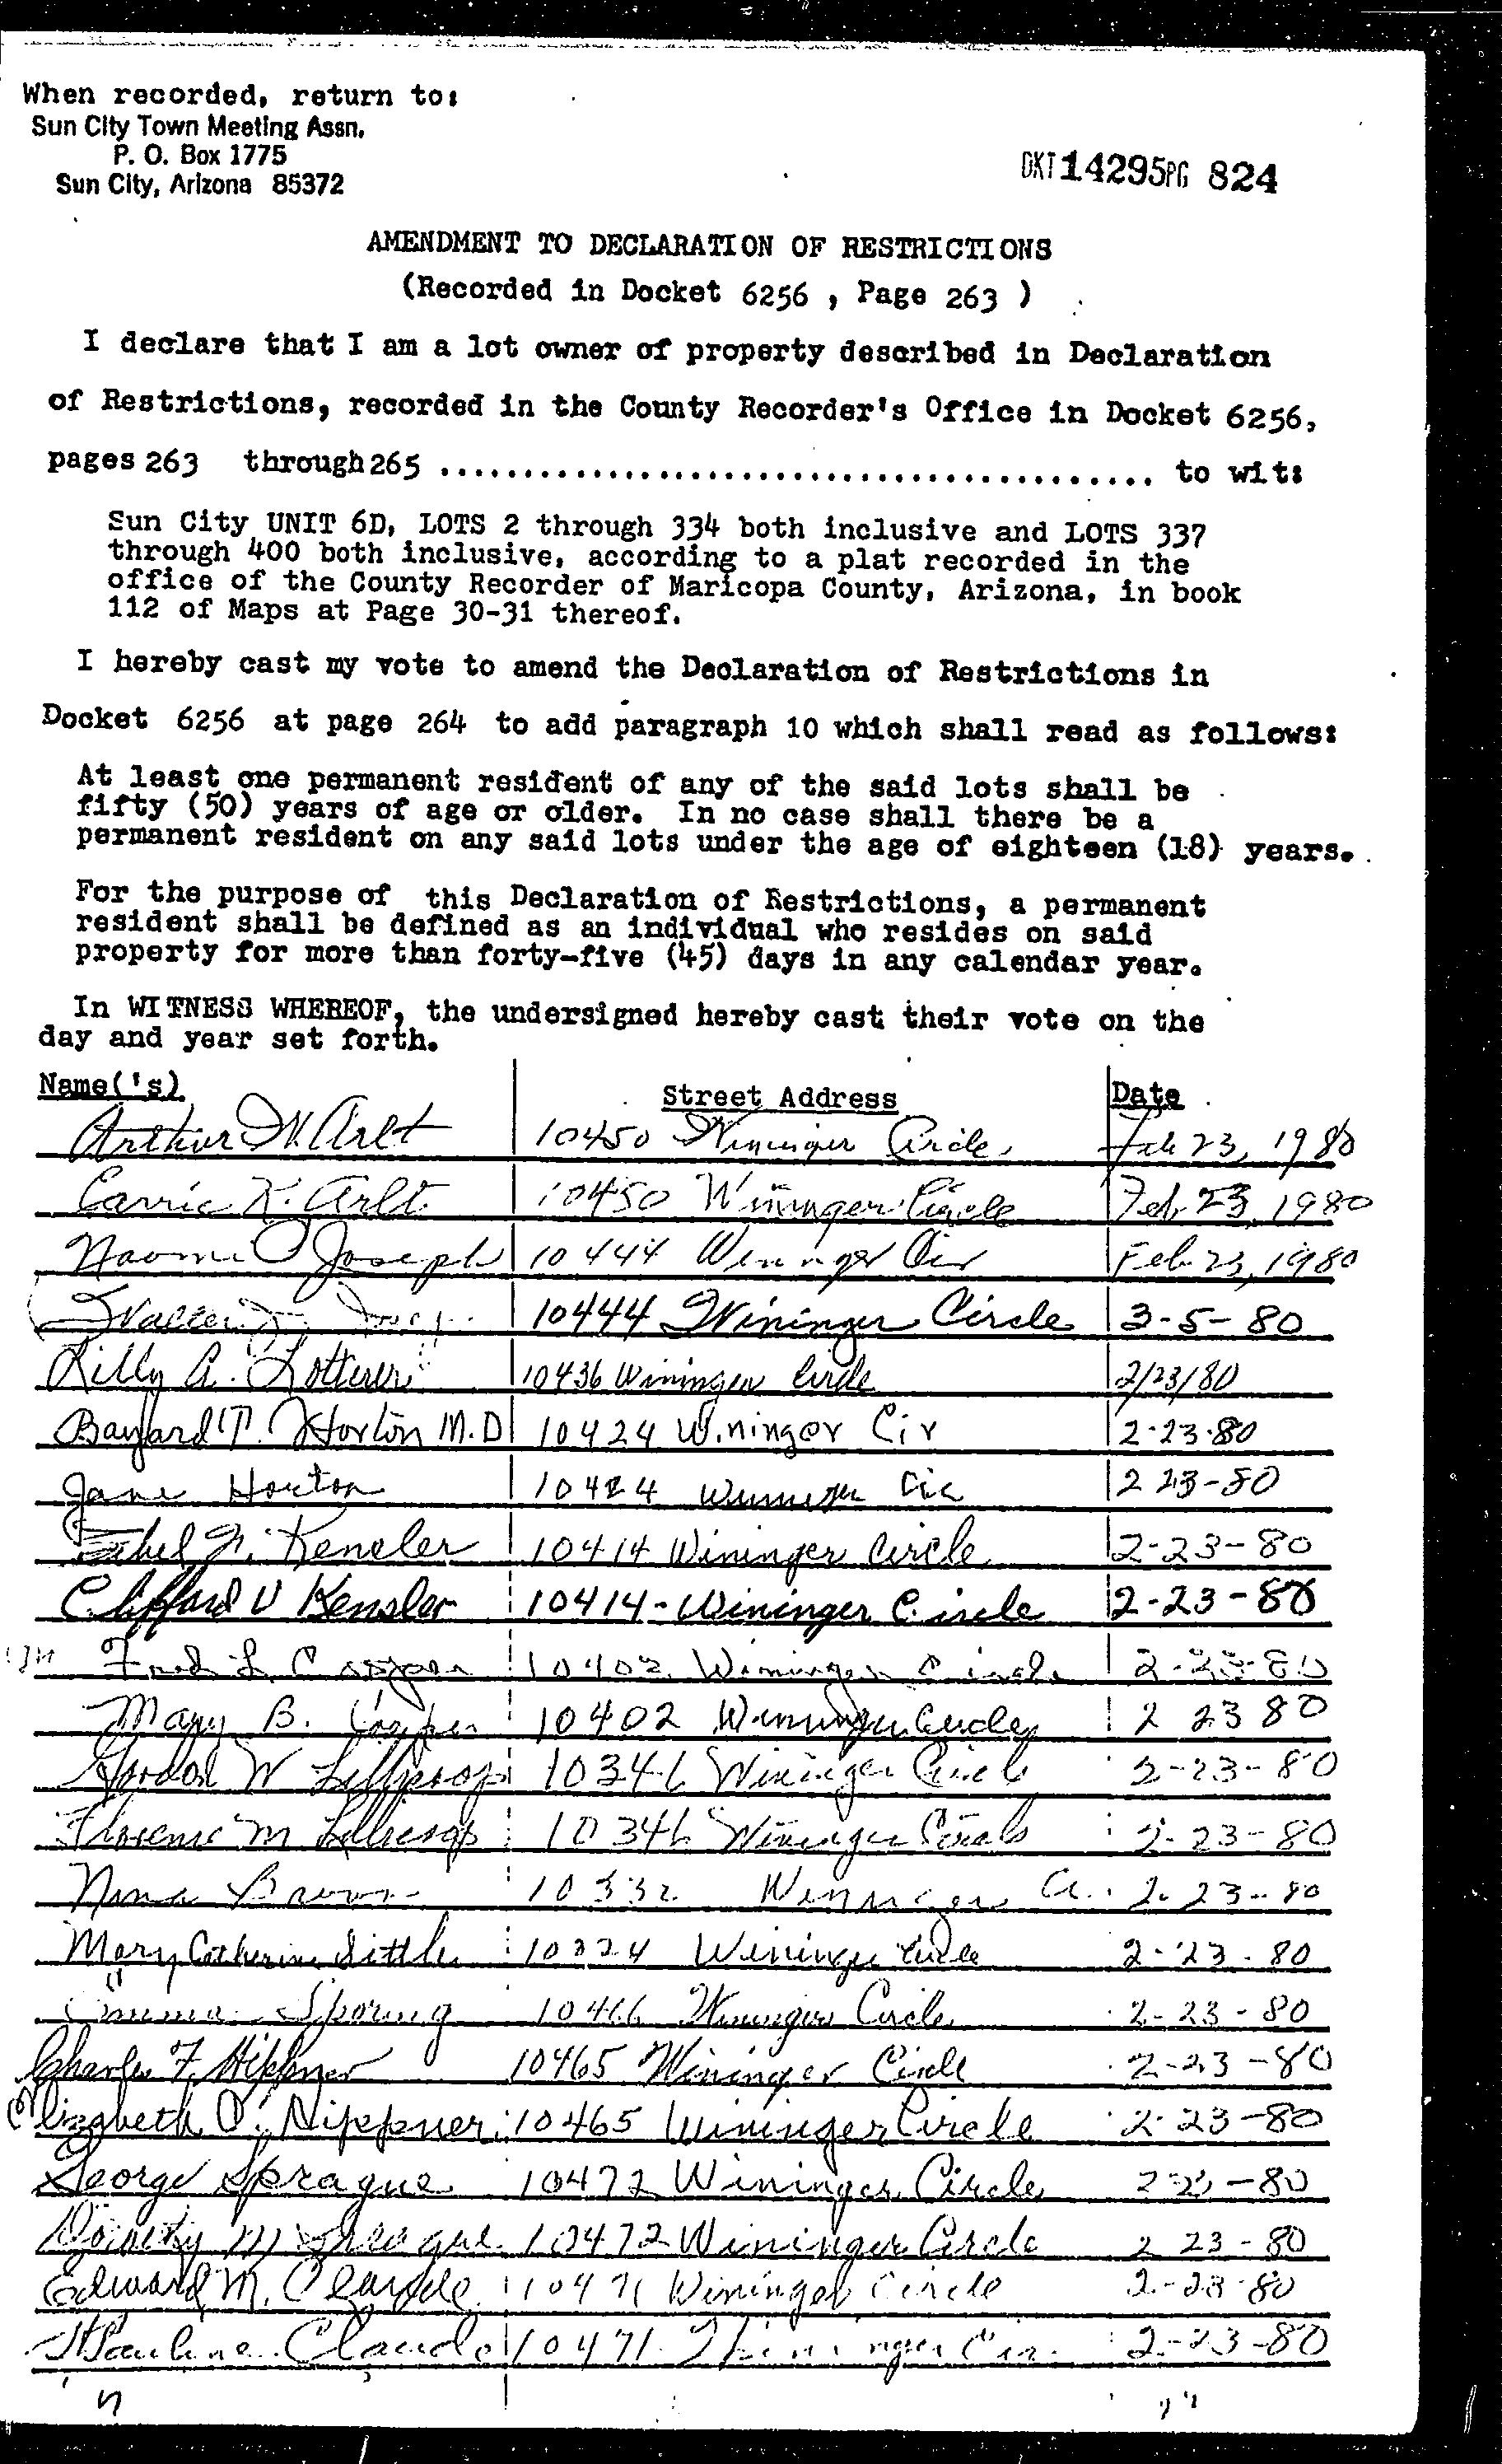 When recorded, return to:
Sun City Town Meeting Assn.
P. O. Box 1775
Sun City, Arizona 85372
DKT 14295 PG 824
AMENDMENT TO DECLARATION OF RESTRICTIONS
(Recorded in Docket 6256 , Page 263 )
I declare that I am a lot owner of property described in Declaration
of Restrictions, recorded in the County Recorder's Office in Docket 6256,
pages 263 through 265 ............................................ to wit:
Sun City UNIT 6D, LOTS 2 through 334 both inclusive and LOTS 337
through 400 both inclusive, according to a plat recorded in the
office of the County Recorder of Maricopa County, Arizona, in book
112 of Maps at Page 30-31 thereof.
I hereby cast my vote to amend the Declaration of Restrictions in
Docket 6256 at page 264 to add paragraph 10 which shall read as follows:
At least one permanent resident of any of the said lots shall be
fifty (50) years of age or older. In no case shall there be a
permanent resident on any said lots under the age of eighteen (18) years.
For the purpose of this Declaration of Restrictions, a permanent
resident shall be defined as an individual who resides on said
property for more than forty-five (45) days in any calendar year.
In WITNESS WHEREOF, the undersigned hereby cast their vote on the
day and year set forth.
Name('s) Street Address Date
Arthur W. Arlt 10450 Wininger Circle Feb 23, 1980
Carrie K. Arlt 10450 Wininger Circle Feb. 23, 1980
Naomi O Joseph 10444 Wininger Cir Feb. 23, 1980
10444 Wininger Circle 3-5-80
Lilly A. Lotterer 10436 Wininger Circle 2/23/80
Bayard T. Horton M.D 10424 Wininger Cir 2-23-80
Jane Horton 10424 Wininger Cir 2 23-80
Ethel N. Kensler 10414 Wininger Circle 2-23-80
Clifford V Kensler 10414-Wininger Circle 2-23-80
Fred L. Cooper 10402 Wininger Circle 2-23-80
Mary B. Cooper 10402 Wininger Circle 2 23 80
Gordon W Lillicrop 10346 Wininger Circle 2-23-80
Florence M Lillicrop 10346 Wininger Circle 2-23-80
Nina Brown 10332 Wininger Ci. 2-23-80
Mary Catherine Little 10324 Wininger Circle 2-23-80
Emma Sporing 10466 Wininger Circle 2-23-80
Charles F. Hippner 10465 Wininger Circle 2-23-80
Elizabeth O. Hippner 10465 Wininger Circle 2-23-80
George Sprague 10472 Wininger Circle 2-23-80
Dorothy M Sprague 10472 Wininger Circle 2 23-80
Edward M. Claude 10471 Wininger Circle 2-23-80
Pauline Claude 10471 Wininger Cir. 2-23-80